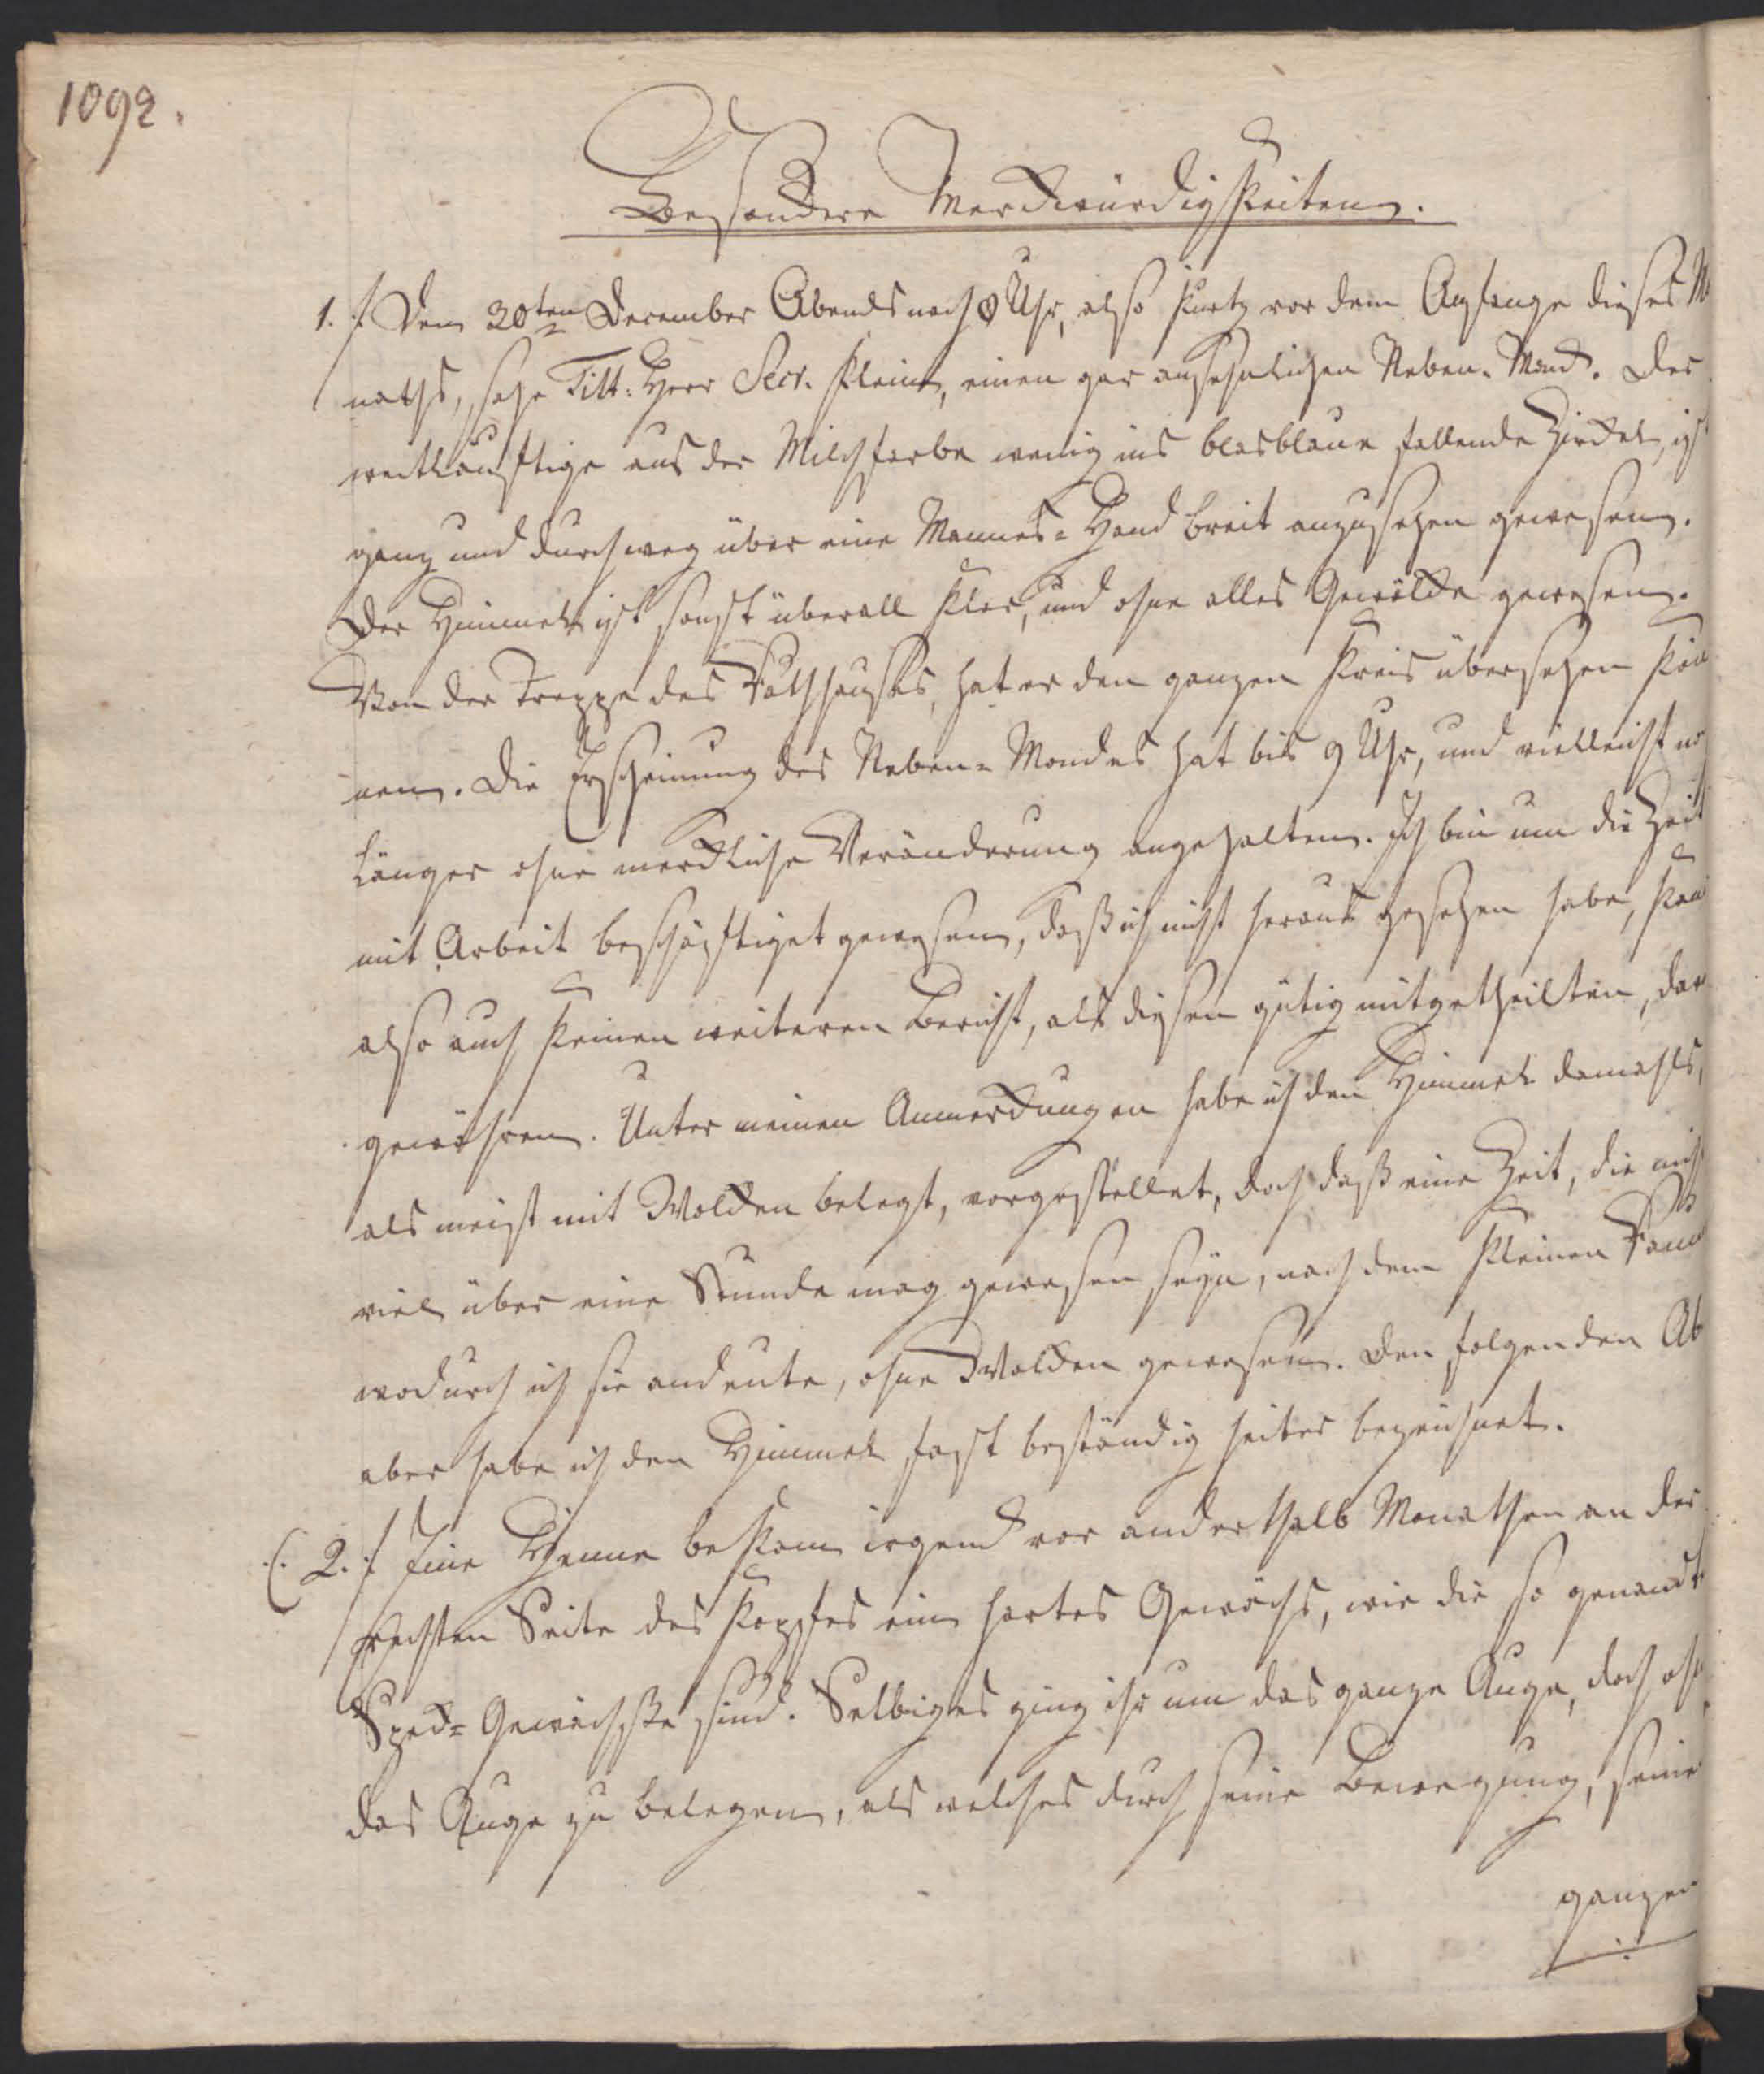 1092.
Besondere Merckwürdigkeiten.
1. ∫. Den 30ten December Abends nach 8 Uhr, also kurtz vor dem Anfange dieses M
naths, sahe Titt: Herr Secr. Klein, einen gar ansehnlichen Neben-Mond. Der
weitläuftige aus der Milchfarbe wenig ins blasblaue fallende Zirckel, ist
ganz und durchweg über eine Mannes-Hand breit anzusehen gewesen.
Der Himmel ist sonst überall klar, und ohne alles Gewölcke gewesen.
Von der Treppe des Rathhauses, hat er den ganzen Kreis übersehen kön
nen. Die Erscheinung des Neben-Mondes hat bis 9 Uhr, und vielleicht no
länger ohne merckliche Veränderung angehalten. Ich bin um die Zeit
mit Arbeit beschäftiget gewesen, daß ich nicht heraus gesehen habe, kan
also auch keinen weiteren Bericht, als diesen gütig mitgetheilten, dar
gewähren. Unter meinen Anmerckungen habe ich den Himmel damahls,
als meist mit Wolcken belegt, vorgestellet, doch daß eine Zeit, die nicht
viel über eine Stunde mag gewesen seyn, nach dem kleinen Raum
wodurch ich sie andeute, ohne Wolcken gewesen. Den folgenden Ab
aber habe ich den Himmel fast beständig heiter bezeichnet.
2. ∫ Eine Henne bekam irgend vor anderthalb Monathen an der
rechten Seite des Kopfes ein hartes Gewächs, wie die so genandt
Speck-Gewächsse sind. Selbiges ging ihr um das ganze Auge, doch ohn
das Auge zu belegen, als welches durch seine Bewegung, seine
ganzen